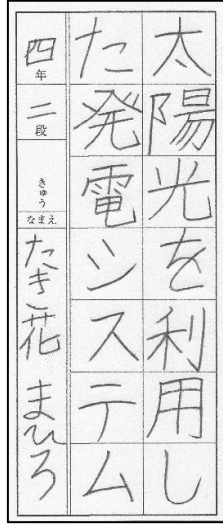 太陽光を利用し
た発電システム
四年
二段
きゅう
なまえ
たき花 まひろ